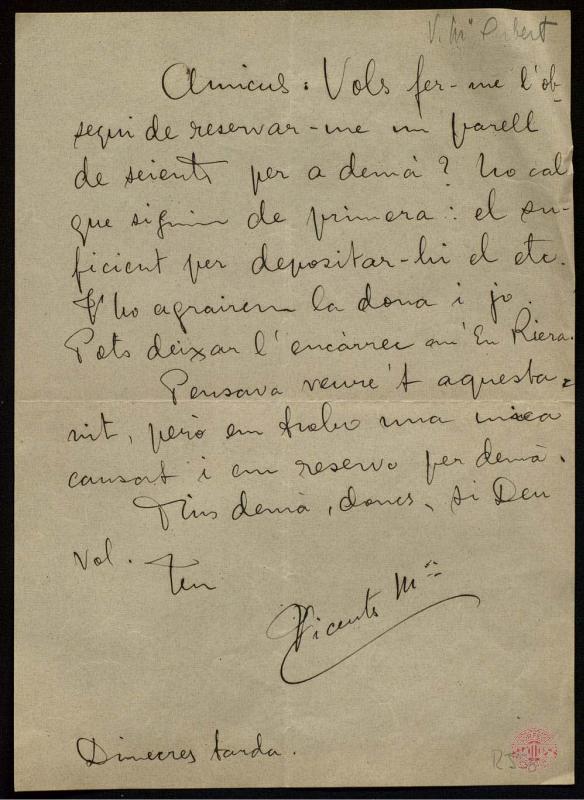 V. Mª Gibert
Amicus: Vols fer-me l'ob-
sequi de reservar-me un parell
de seients per a demà? No cal
que siguin de primera: el su-
ficient per depositar-hi el etc.
T'ho agrairem la dona i jo.
Pots deixar l'encàrrec an' En Riera.
Pensava veure't aquesta
nit, però em trobo una mica
cansat i em reservo per demà.
Fins demà, doncs, si Deu
vol.
Teu
Vicents Mª
Dimecres tarda.